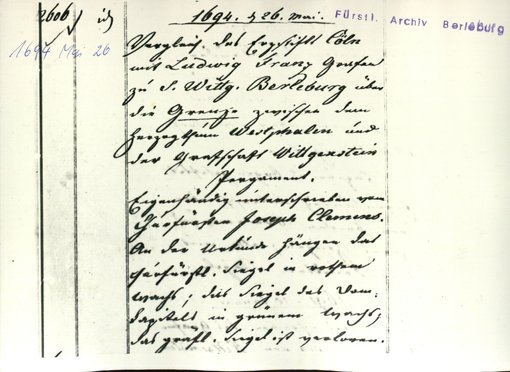 2606
1694. d 26. Mai.
Fürstl. Archiv Berleburg
1694 Mai 26
Vergleich des Erzstifts Cöln
mit Ludwig Franz Grafen
zu S. Wittg. Berleburg über
die Grenze zwischen dem
Herzogthum Westphalen und
der Grafschaft Wittgenstein
Pergament.
Eigenhändig unterschrieben vom
Churfürsten Joseph Clemens.
An der Urkunde hängen das
Churfürstl. Siegel in rothem
Wachs; das Siegel des Dom-
kapitels in grünem Wachs;
das gräfl. Siegel ist verloren.